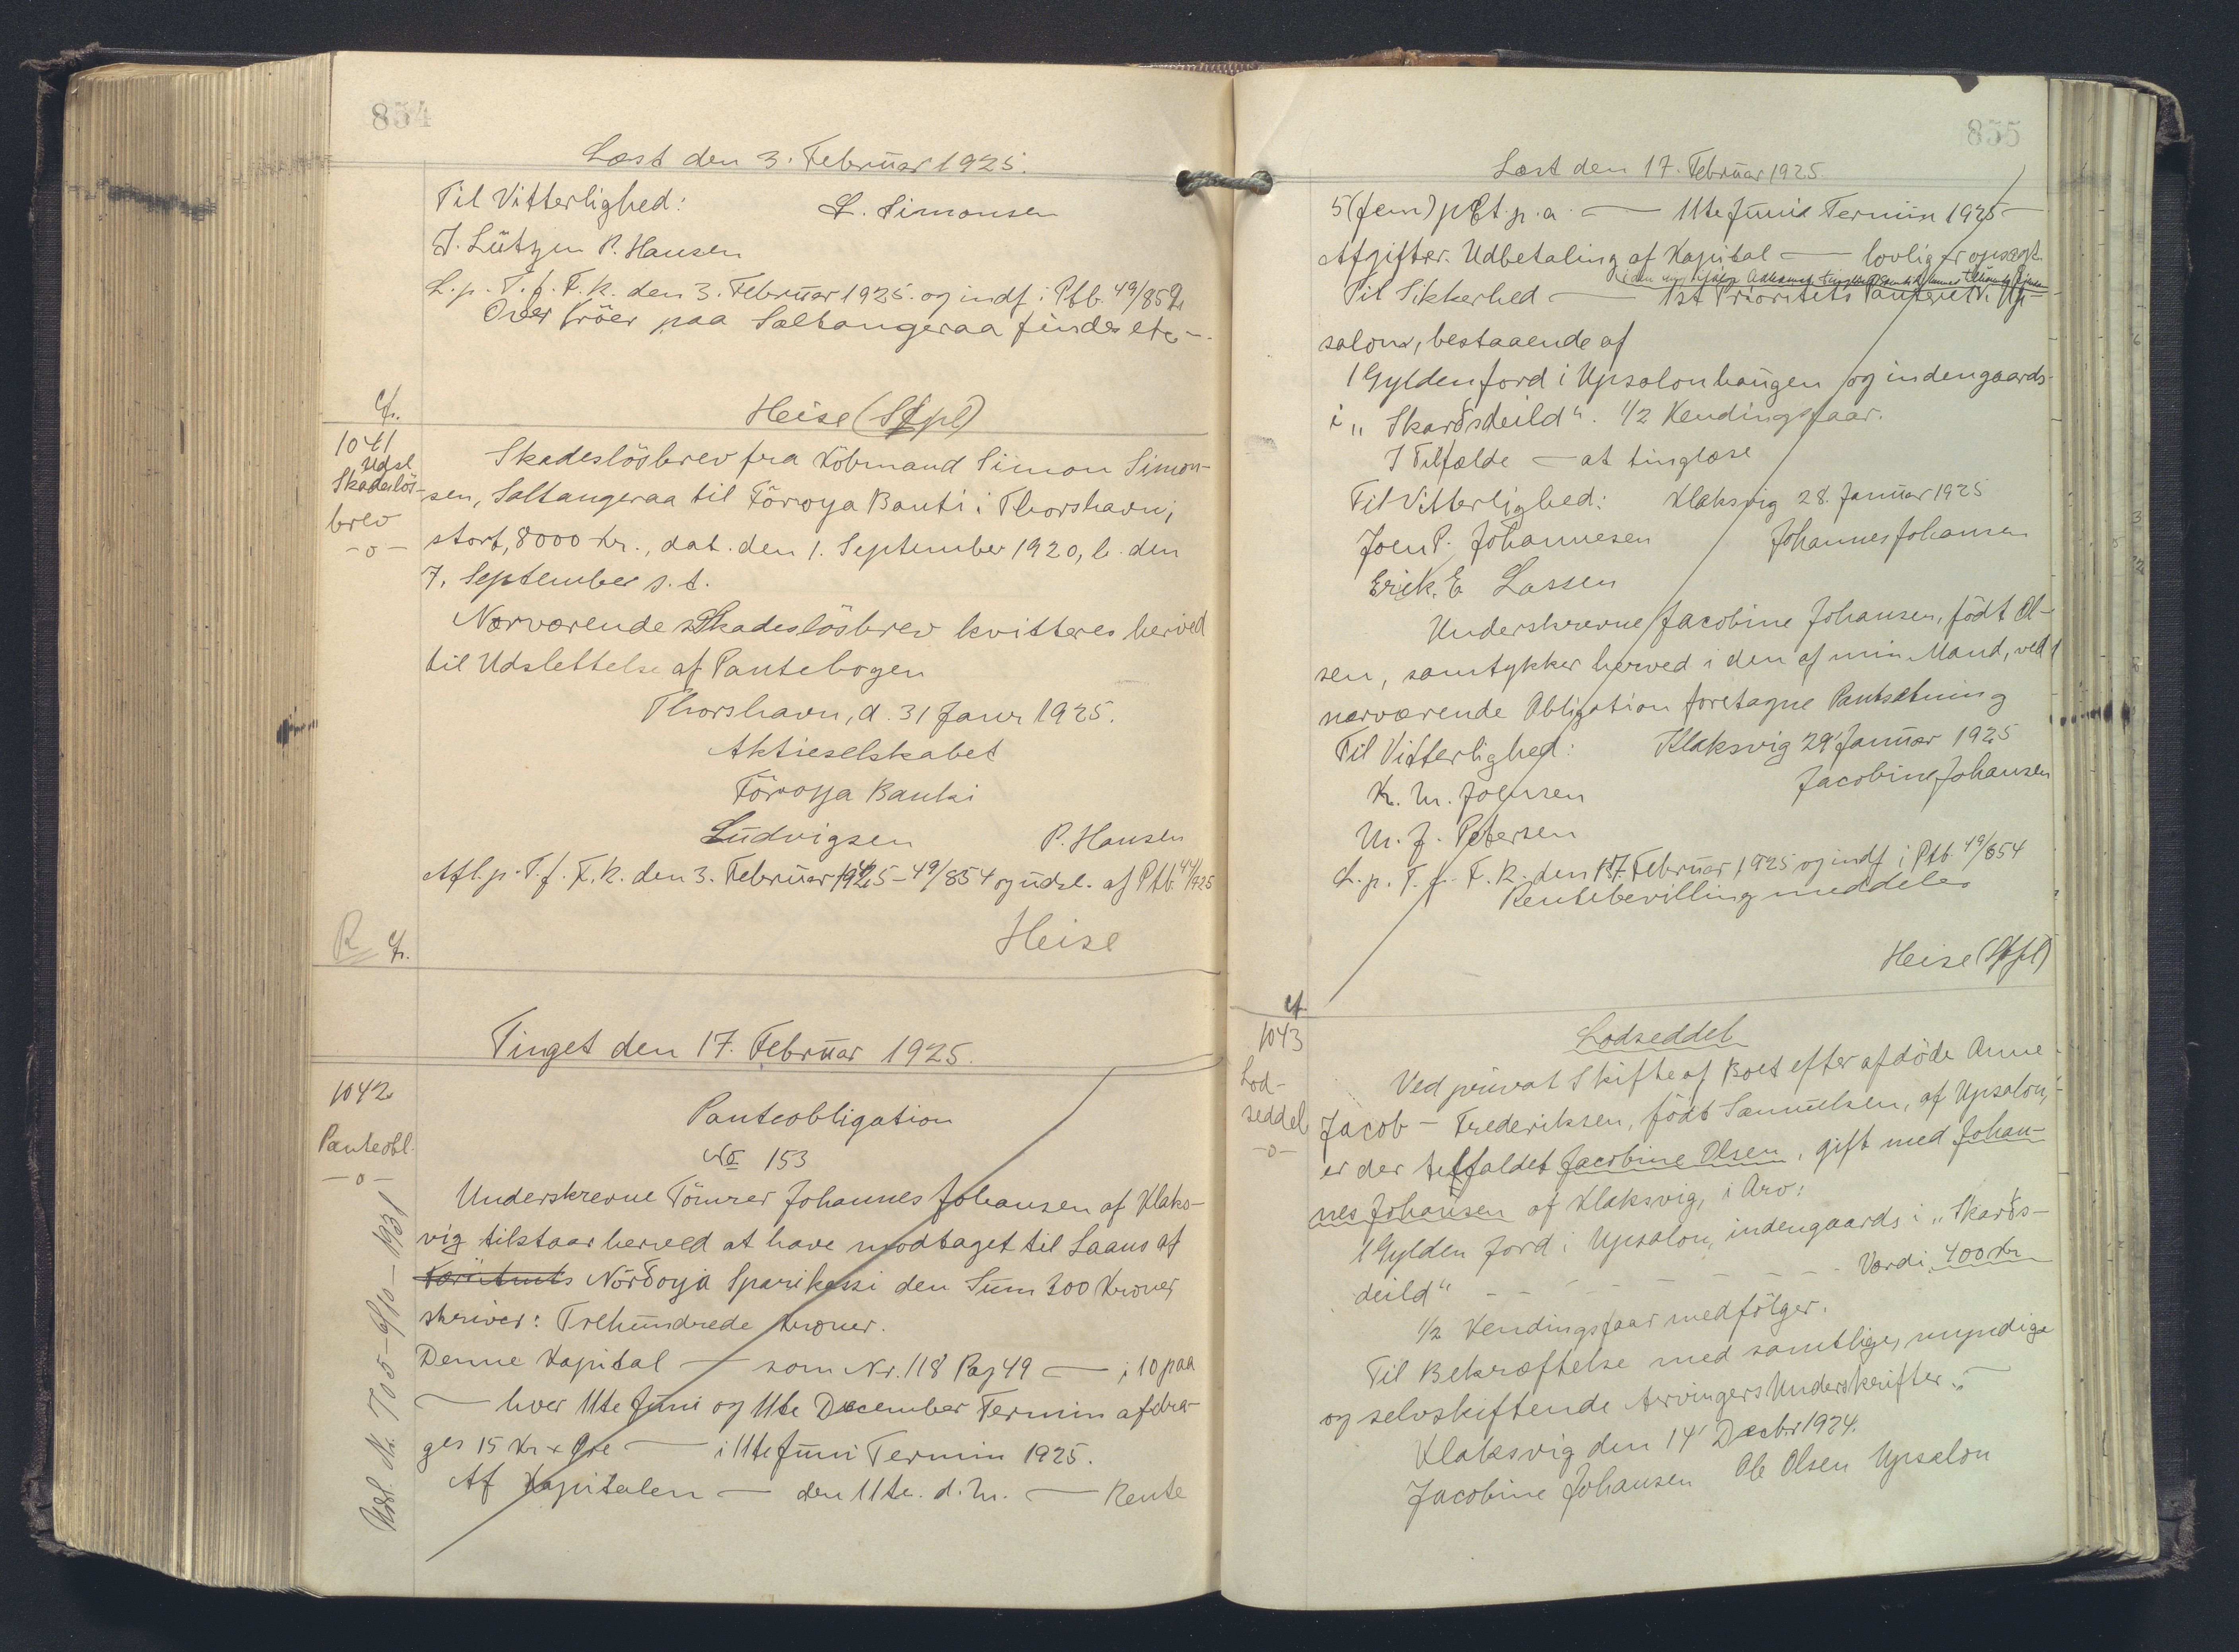 854
Læst den 3. Februar 1925.
Til Vitterlighed: S. Simonsen
J. Lützen P. Hansen
L. p. T. f. F. k. den 3. Februar 1925. og indf. i Ptb. 49/852
Over Gröer paa Saltangeraa findes etc -.
Cfr. Heise (Stpl)
1041
Udsl.
Skadeslös-
brev
-o-
Skadeslösbrev fra Köbmand Simon Simon-
sen, Saltangeraa til Förroya Banki i Thorshavn,
stort, 8000 Kr., dat. den 1. September 1920, l. den
7. September s. A.
Nærværende Skadeslösbrev kvitteres herved
til Udslettelse af Pantebogen
Thorshavn, d. 31 Janr 1925.
Aktieselskabet
Förroya Banki
Ludvigsen P. Hansen
Afl. p. T. f. F. k. den 3. Februar 1925 - 49/854 og udsl. af Ptb. 44/425
Heise
R Cfr.
Tinget den 17. Februar 1925.
1042
Panteobl.
-o-
Udsl. Nr. 705 - 6/10 - 1931
Panteobligation
No 153
Underskrevne Tömrer Johannes Johansen af Klaks-
vig tilstaar herved at have modtaget til Laans af
Norðoya Sparikassi den Sum 300 Kroner,
skriver: Trehundrede Kroner.
Denne Kapital — som Nr. 118 Pag 49 — i 10 paa
— hver 11te Juni og 11te December Termin afdra-
ges 15 Kr x Øre — i 11te Juni Termin 1925.
Af Kapitalen — den 11te. d. M. — Rente
855
Læst den 17. Februar 1925
5 (fem) pCt. p. a. — 11te Juni Termin 1925 —
Afgifter. Udbetaling af Kapital — lovlig er opsagt.
Til Sikkerhed — 1st Prioritets Panteret i Up-
salon, bestaaende af
1 Gylden Jord i Upsalonhaugen og indengaards
i „Skarðsdeild“. 1/2 Kendingsfaar.
I Tilfælde — at tinglæse
Til Vitterlighed: Klaksvig 28. Januar 1925
Joen P. Johannesen Johannes Johansen
Erick. E Lassen
Underskrevne Jacobine Johansen, födt Ol-
sen, samtykker herved i den af min Mand, ved
nærværende Obligation foretagne Pantsætning
Til Vitterlighed: Klaksvig 29' Januar 1925
K. M. Joensen Jacobine Johansen
M. J. Petersen
L. p. T. f. F. k. den 17. Februar 1925 og indf. i Ptb. 49/854
Rentebevilling meddeles
Heise (Stpl)
Cfr.
1043
Lod-
seddel
-o-
Lodseddel
Ved privat Skifte af Boet efter afdöde Anne
Jacob - Frederiksen, födt Samuelsen, af Upsalon,
er der tilfaldet Jacobine Olsen, gift med Johan-
nes Johansen af Klaksvig, i Arv:
1 Gylden Jord i Upsalon, indengaards i „Skarðs-
deild“ - - - - - - - Værdi 400 Kr
1/2 Kendingsfaar medfölger.
Til Bekræftelse med samtlige, myndige
og selvskiftende Arvingers Underskrifter. -
Klaksvig den 14' Decbr 1924.
Jacobine Johansen Ole Olsen Upsalon